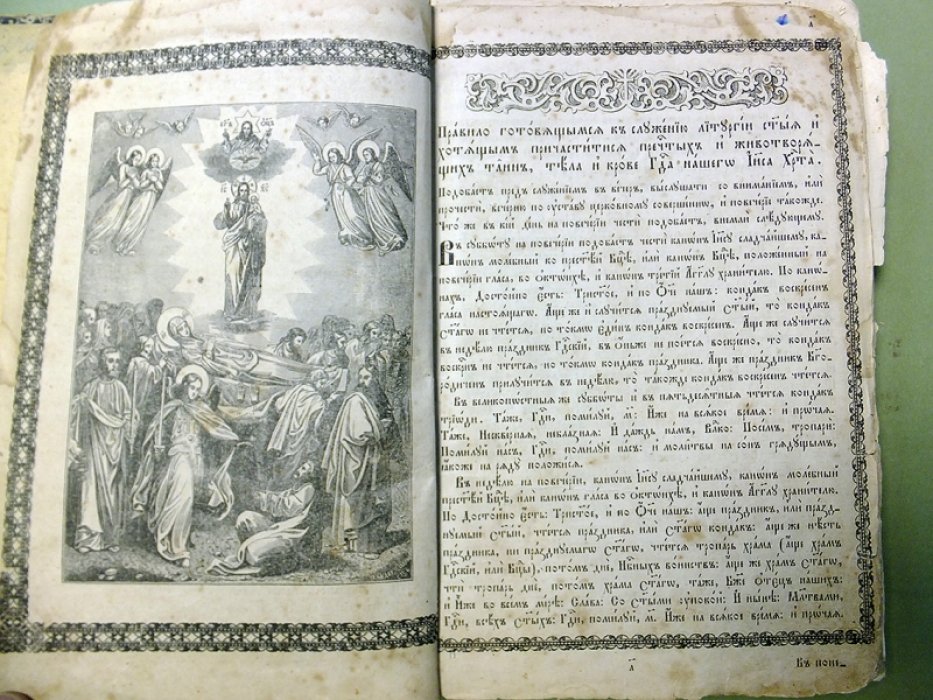 Пра́вило гото́вѧщымсѧ къ слꙋже́нїю лїтꙋргі́и ст҃ы́ѧ и҆
хотѧ́щымъ причасти́тисѧ пречⷭ҇тыхъ и҆ животворѧ́-
щихъ та̑инъ, тѣ́ла и҆ кро́ве гдⷭ҇а на́шегѡ і҆и҃са хрⷭ҇та̀.
Подоба́етъ пред̾ слꙋже́нїемъ въ ве́черъ, вы́слꙋшати со внима́нїемъ, и҆лѝ
прочестѝ, вече́рню по ᲂу҆ста́вꙋ церко́вномꙋ соверше́ннꙋю, и҆ повече́рїе та́кожде.
Что́ же въ кі́й де́нь на повече́рїи честѝ подоба́етъ, внима́й слѣ́дꙋющемꙋ.
Въ сꙋббѡ́тꙋ на повече́рїи подоба́етъ честѝ канѡ́нъ і҆и҃сꙋ сладча́йшемꙋ, ка-
нѡ́нъ моле́бный ко прест҃ѣ́й бц҃ѣ, и҆лѝ канѡ́нъ бц҃ѣ, положе́нный на
повече́рїи гла́са, во ѻ҆ктѡ́исѣ, и҆ канѡ́нъ тре́тїй а҆́гг҃лꙋ храни́телю. По канѡ́-
нахъ, Досто́йно є҆́сть: Трист҃о́е, и҆ по Ѻ҆́ч҃е на́шъ: конда́къ воскре́сенъ
гла́са настоѧ́щагѡ. А҆́ще же и҆ слꙋчи́тсѧ пра́зднꙋемый ст҃ы́й, то̀ конда́къ
ст҃а́гѡ не чте́тсѧ, но то́кмѡ є҆ди́нъ конда́къ воскре́сенъ. А҆́ще же слꙋчи́тсѧ
въ недѣ́лю пра́здникъ гдⷭ҇кїй, въ ѻ҆́ньже не пое́тсѧ воскре́сно, то̀ конда́къ
воскр҃нъ не чте́тсѧ, но то́кмѡ конда́къ пра́здника. А҆́ще же пра́здникъ бг҃о-
роди́ченъ прилꙋчи́тсѧ въ недѣ́лю, то̀ та́кожде конда́къ воскре́сенъ чте́тсѧ.
Въ великопѡ́стныѧ же сꙋббѡ́ты и҆ въ пѧтьдесѧ́тныѧ чте́тсѧ конда́къ
трїѡ́ди. Та́же, Гдⷭ҇и, поми́лꙋй, м҃: И҆́же на всѧ́кое вре́мѧ: и҆ прѡ́чаѧ.
Та́же, Нескве́рнаѧ, небла́знаѧ: И҆ да́ждь на́мъ, вл҃ко: Посе́мъ, тропарѝ:
Поми́лꙋй на́съ, гдⷭ҇и, поми́лꙋй на́съ: и҆ моли̑твы на со́нъ грѧдꙋ́щымъ,
ꙗ҆́коже на рѧдꙋ̀ положи́сѧ.
Въ недѣ́лю на повече́рїи, канѡ́нъ і҆и҃сꙋ сладча́йшемꙋ, канѡ́нъ моле́бный
прест҃ѣ́й бц҃ѣ, и҆лѝ канѡ́нъ гла́са во ѻ҆ктѡ́исѣ, и҆ канѡ́нъ а҆́гг҃лꙋ храни́телю.
По Досто́йно є҆́сть: Трист҃о́е, и҆ по Ѻ҆́ч҃е на́шъ: а҆́ще пра́здникъ, и҆лѝ пра́зд-
нꙋемый ст҃ы́й, чте́тсѧ пра́здника, и҆лѝ ст҃а́гѡ конда́къ: а҆́ще же нѣ́сть
пра́здника, ни пра́зднꙋемагѡ ст҃а́гѡ, чте́тсѧ тропа́рь хра́ма (а҆́ще хра́мъ
гдⷭ҇кїй, и҆лѝ бц҃ы), пото́мъ днѐ, Нбⷭ҇ныхъ во́инствъ: а҆́ще же хра́мъ ст҃а́гѡ,
чтѝ тропа́рь днѐ, пото́мъ хра́ма ст҃а́гѡ, та́же, Бж҃е ѻ҆тє́цъ на́шихъ:
и҆ И҆́же во все́мъ мі́рѣ: Сла́ва: Со ст҃ы́ми ᲂу҆поко́й: И҆ ны́нѣ: Мл҃твами,
гдⷭ҇и, всѣ́хъ ст҃ы́хъ: Гдⷭ҇и, поми́лꙋй, м҃. И҆́же на всѧ́кое вре́мѧ: и҆ прѡ́чаѧ.
а҃
Въ поне-